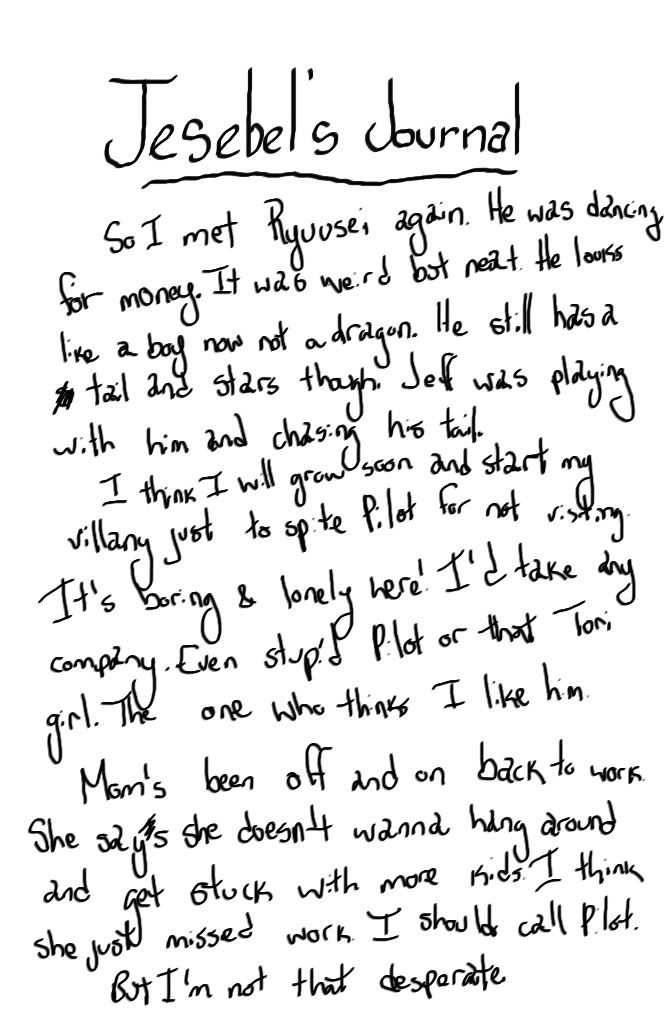 Jesebel's Journal
So I met Ryuusei again. He was dancing
for money. It was weird but neat. He looks
like a boy now not a dragon. He still has a
tail and stars though. Jeff was playing
with him and chasing his tail.
I think I will grow soon and start my
villany just to spite Pilot for not visting.
It's boring & lonely here! I'd take any
company. Even stupid Pilot or that Tori
girl. The one who thinks I like him.
Mom's been off and on back to work.
She says she doesn't wanna hang around
and get stuck with more kids. I think
she just missed work. I should call Pilot.
But I'm not that desperate